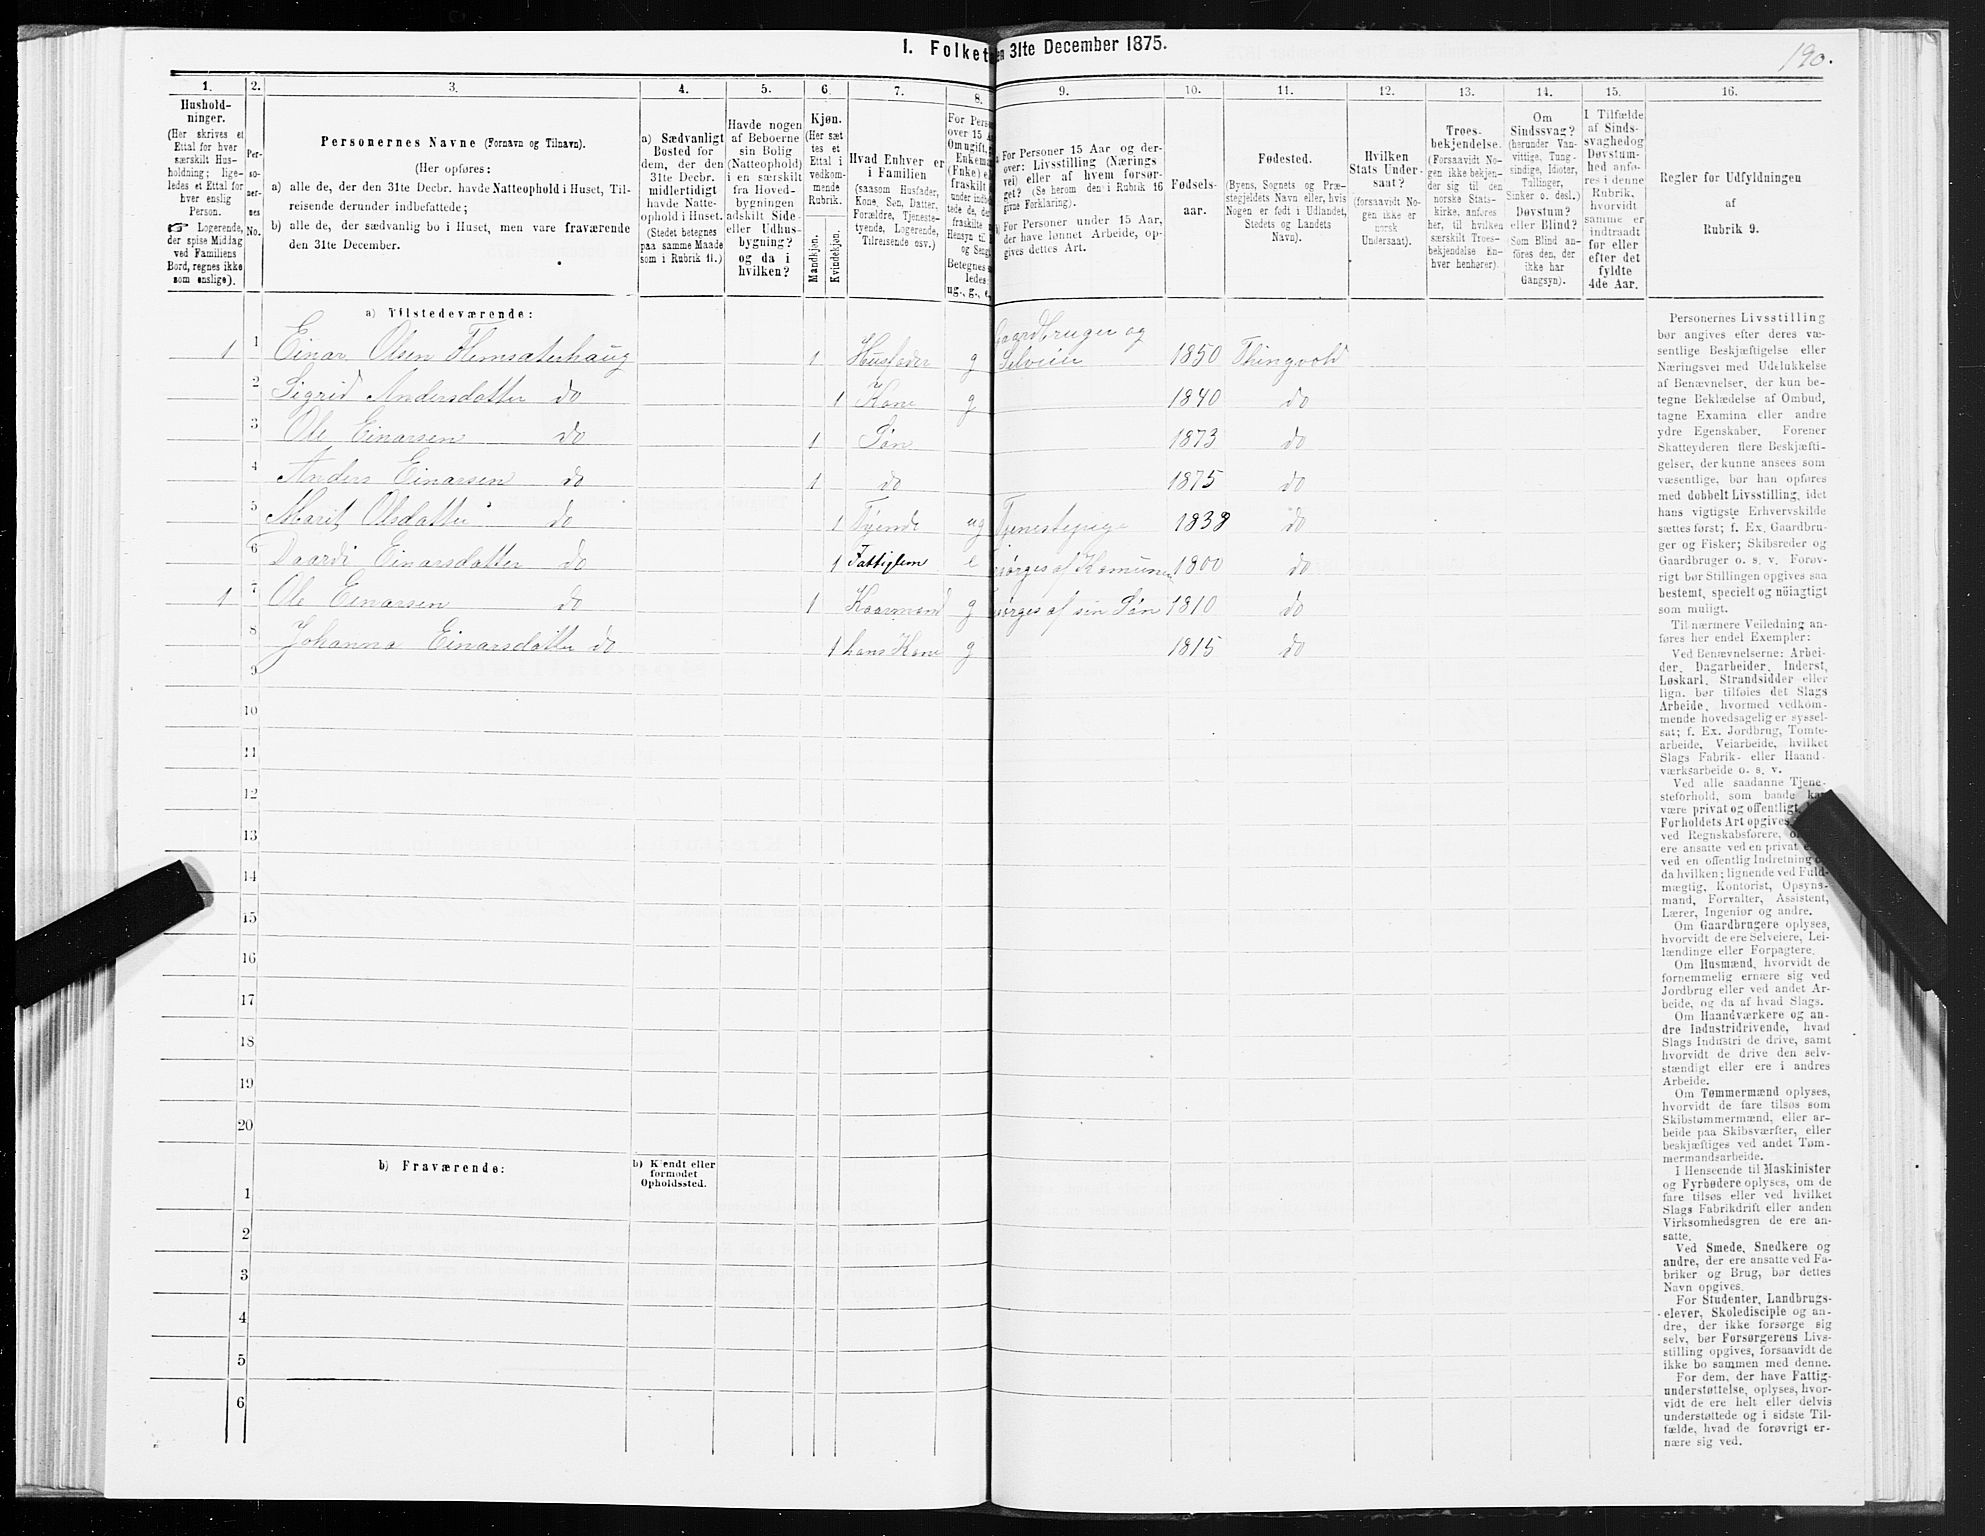 190.
1. Folket
en 31te December 1875.
1.
2.
3.
4.
5.
6.
7.
8.
9.
10.
11.
12.
13.
14.
15.
16.
Hushold-
ninger.
(Her skrives et
Ettal for hver
særskilt Hus-
holdning; lige-
ledes et Ettal for
hver enslig
Person.
☞ Logerende,
der spise Middag
ved Familiens
Bord, regnes ikke
som enslige).
Per-
so-
ner-
nes
No.
Personernes Navne (Fornavn og Tilnavn).
(Her opføres:
a) alle de, der den 31te Decbr. havde Natteophold i Huset, Til-
reisende derunder indbefattede;
b) alle de, der sædvanlig bo i Huset, men vare fraværende
den 31te December.
a) Sædvanligt
Bosted for
dem, der den
31te Decbr.
midlertidigt
havde Natte-
ophold i Huset.
(Stedet betegnes
paa samme Maade
som i Rubrik 11.)
Havde nogen
af Beboerne
sin Bolig
(Natteophold)
i en særskilt
fra Hoved-
bygningen
adskilt Side-
eller Udhus-
bygning?
og da i
hvilken?
Kjøn.
(Her sæt-
tes et
Ettal i
vedkom-
mende
Rubrik.
Mandkjøn.
Kvindekjøn.
Hvad Enhver er
i Familien
(saasom Husfader,
Kone, Søn, Datter,
Forældre, Tjeneste-
tyende, Logerende,
Tilreisende osv.)
For Pers
over 15 A
Om ugift, g
Enkem
(Enke) e
fraskilt
under indb
tede de, d
fraskilte
Hensyn til
og Seng
Betegnes s
ledes:
ug., g., e.
For Personer 15 Aar og der-
over: Livsstilling (Nærings
vei) eller af hvem forsør-
get? (Se herom den i Rubrik 16
givne Forklaring).
For Personer under 15 Aar,
der have lønnet Arbeide, op-
gives dettes Art.
Fødsels-
aar.
Fødested.
(Byens, Sognets og Præ-
stegjeldets Navn eller, hvis
Nogen er født i Udlandet,
Stedets og Landets
Navn).
Hvilken
Stats Under-
saat?
(forsaavidt No-
gen ikke er
norsk
Undersaat).
Troes-
bekjendelse.
(Forsaavidt No-
gen ikke bekjen-
der sig til den
norske Stats-
kirke, anføres
her, til hvilken
særskilt Troes-
bekjendelse En-
hver henhører).
Om
Sindssvag?
(herunder Van-
vittige, Tung-
sindige, Idioter,
Tullinger,
Sinker o. desl.)
Døvstum?
eller Blind?
(Som Blind an-
føres den, der
ikke har
Gangsyn).
I Tilfælde
af Sinds-
svaghed og
Døvstum-
hed anfø-
res i denne
Rubrik,
hvorvidt
samme er
indtraadt
før eller
efter det
fyldte
4de Aar.
Regler for Udfyldningen
af
Rubrik 9.
a) Tilstedeværende:
Gaardbruger og
1 1 Einar Olsen Flemsæterhaug 1 Husfader g Selveier 1850 Thingvold
2 Sigrid Andersdatter do 1 Kone g 1840 do
3 Ole Einarsen do 1 Søn 1873 do
4 Anders Einarsen do 1 do 1875 do
5 Marit Olsdatter do 1 Tyende ug Tjenestepige 1838 do
6 Daardi Einarsdatter do 1 Fattiglem e af Komunen 1800 do
1 7 Ole Einarsen do 1 Kaarmand g af sin Søn 1810 do
8 Johanna Einarsdatter do 1 hans Kone g 1815 do
9
10
11
12
13
14
15
16
17
18
19
20
b) Fraværende:
b) Kjendt eller
formodet
Opholdssted.
1
2
3
4
5
6
Personernes Livsstilling
bør angives efter deres væ-
sentlige Beskjæftigelse eller
Næringsvei med Udelukkelse
af Benævnelser, der kun be-
tegne Beklædelse af Ombud,
tagne Examina eller andre
ydre Egenskaber. Forener
Skatteyderen flere Beskjæfti-
gelser, der kunne ansees som
væsentlige, bør han opføres
med dobbelt Livsstilling, idet
hans vigtigste Erhvervskilde
sættes først; f. Ex. Gaardbru-
ger og Fisker; Skibsreder og
Gaardbruger o. s. v. Forøv-
rigt bør Stillingen opgives saa
bestemt, specielt og nøiagtigt
som muligt.
Til nærmere Veiledning an-
føres her endel Exempler:
Ved Benævnelserne: Arbei-
der, Dagarbeider, Inderst,
Løskarl, Strandsidder eller
lign. bør tilføies det Slags
Arbeide, hvormed vedkom-
mende hovedsagelig er syssel-
sat; f. Ex. Jordbrug, Tomte-
arbeide, Veiarbeide, hvilket
Slags Fabrik- eller Haand-
værksarbeide o. s. v.
Ved alle saadanne Tjene-
steforhold, som baade kan
være privat og offentligt,
Forholdets Art opgives,
ved Regnskabsførere, o
ere ansatte ved en privat e
ved en offentlig Indretning
da hvilken; lignende ved Fuld-
mægtig, Kontorist, Opsyns-
mand, Forvalter, Assistent,
Lærer, Ingeniør og andre.
Om Gaardbrugere oplyses,
hvorvidt de ere Selveiere, Lei-
lændinge eller Forpagtere.
Om Husmænd, hvorvidt de
fornemmelig ernære sig ved
Jordbrug eller ved andet Ar-
beide, og da af hvad Slags.
Om Haandværkere og an-
dre Industridrivende, hvad
Slags Industri de drive, samt
hvorvidt de drive den selv-
stændigt eller ere i andres
Arbeide.
Om Tømmermænd oplyses,
hvorvidt de fare tilsøs som
Skibstømmermænd, eller ar-
beide paa Skibsværfter, eller
beskjæftiges ved andet Tøm-
mermandsarbeide.
I Henseende til Maskinister
og Fyrbødere oplyses, om de
fare tilsøs eller ved hvilket
Slags Fabrikdrift eller anden
Virksomhedsgren de ere an-
satte.
Ved Smede, Snedkere og
andre, der ere ansatte ved Fa-
briker og Brug, bør dettes
Navn opgives.
For Studenter, Landbrugs-
elever, Skoledisciple og an-
dre, der ikke forsørge sig
selv, bør Forsørgerens Livs-
stilling opgives, forsaavidt de
ikke bo sammen med denne.
For dem, der have Fattig-
understøttelse, oplyses, hvor-
vidt de ere helt eller delvis
understøttede og i sidste Til-
fælde, hvad de forøvrigt er-
nære sig ved.